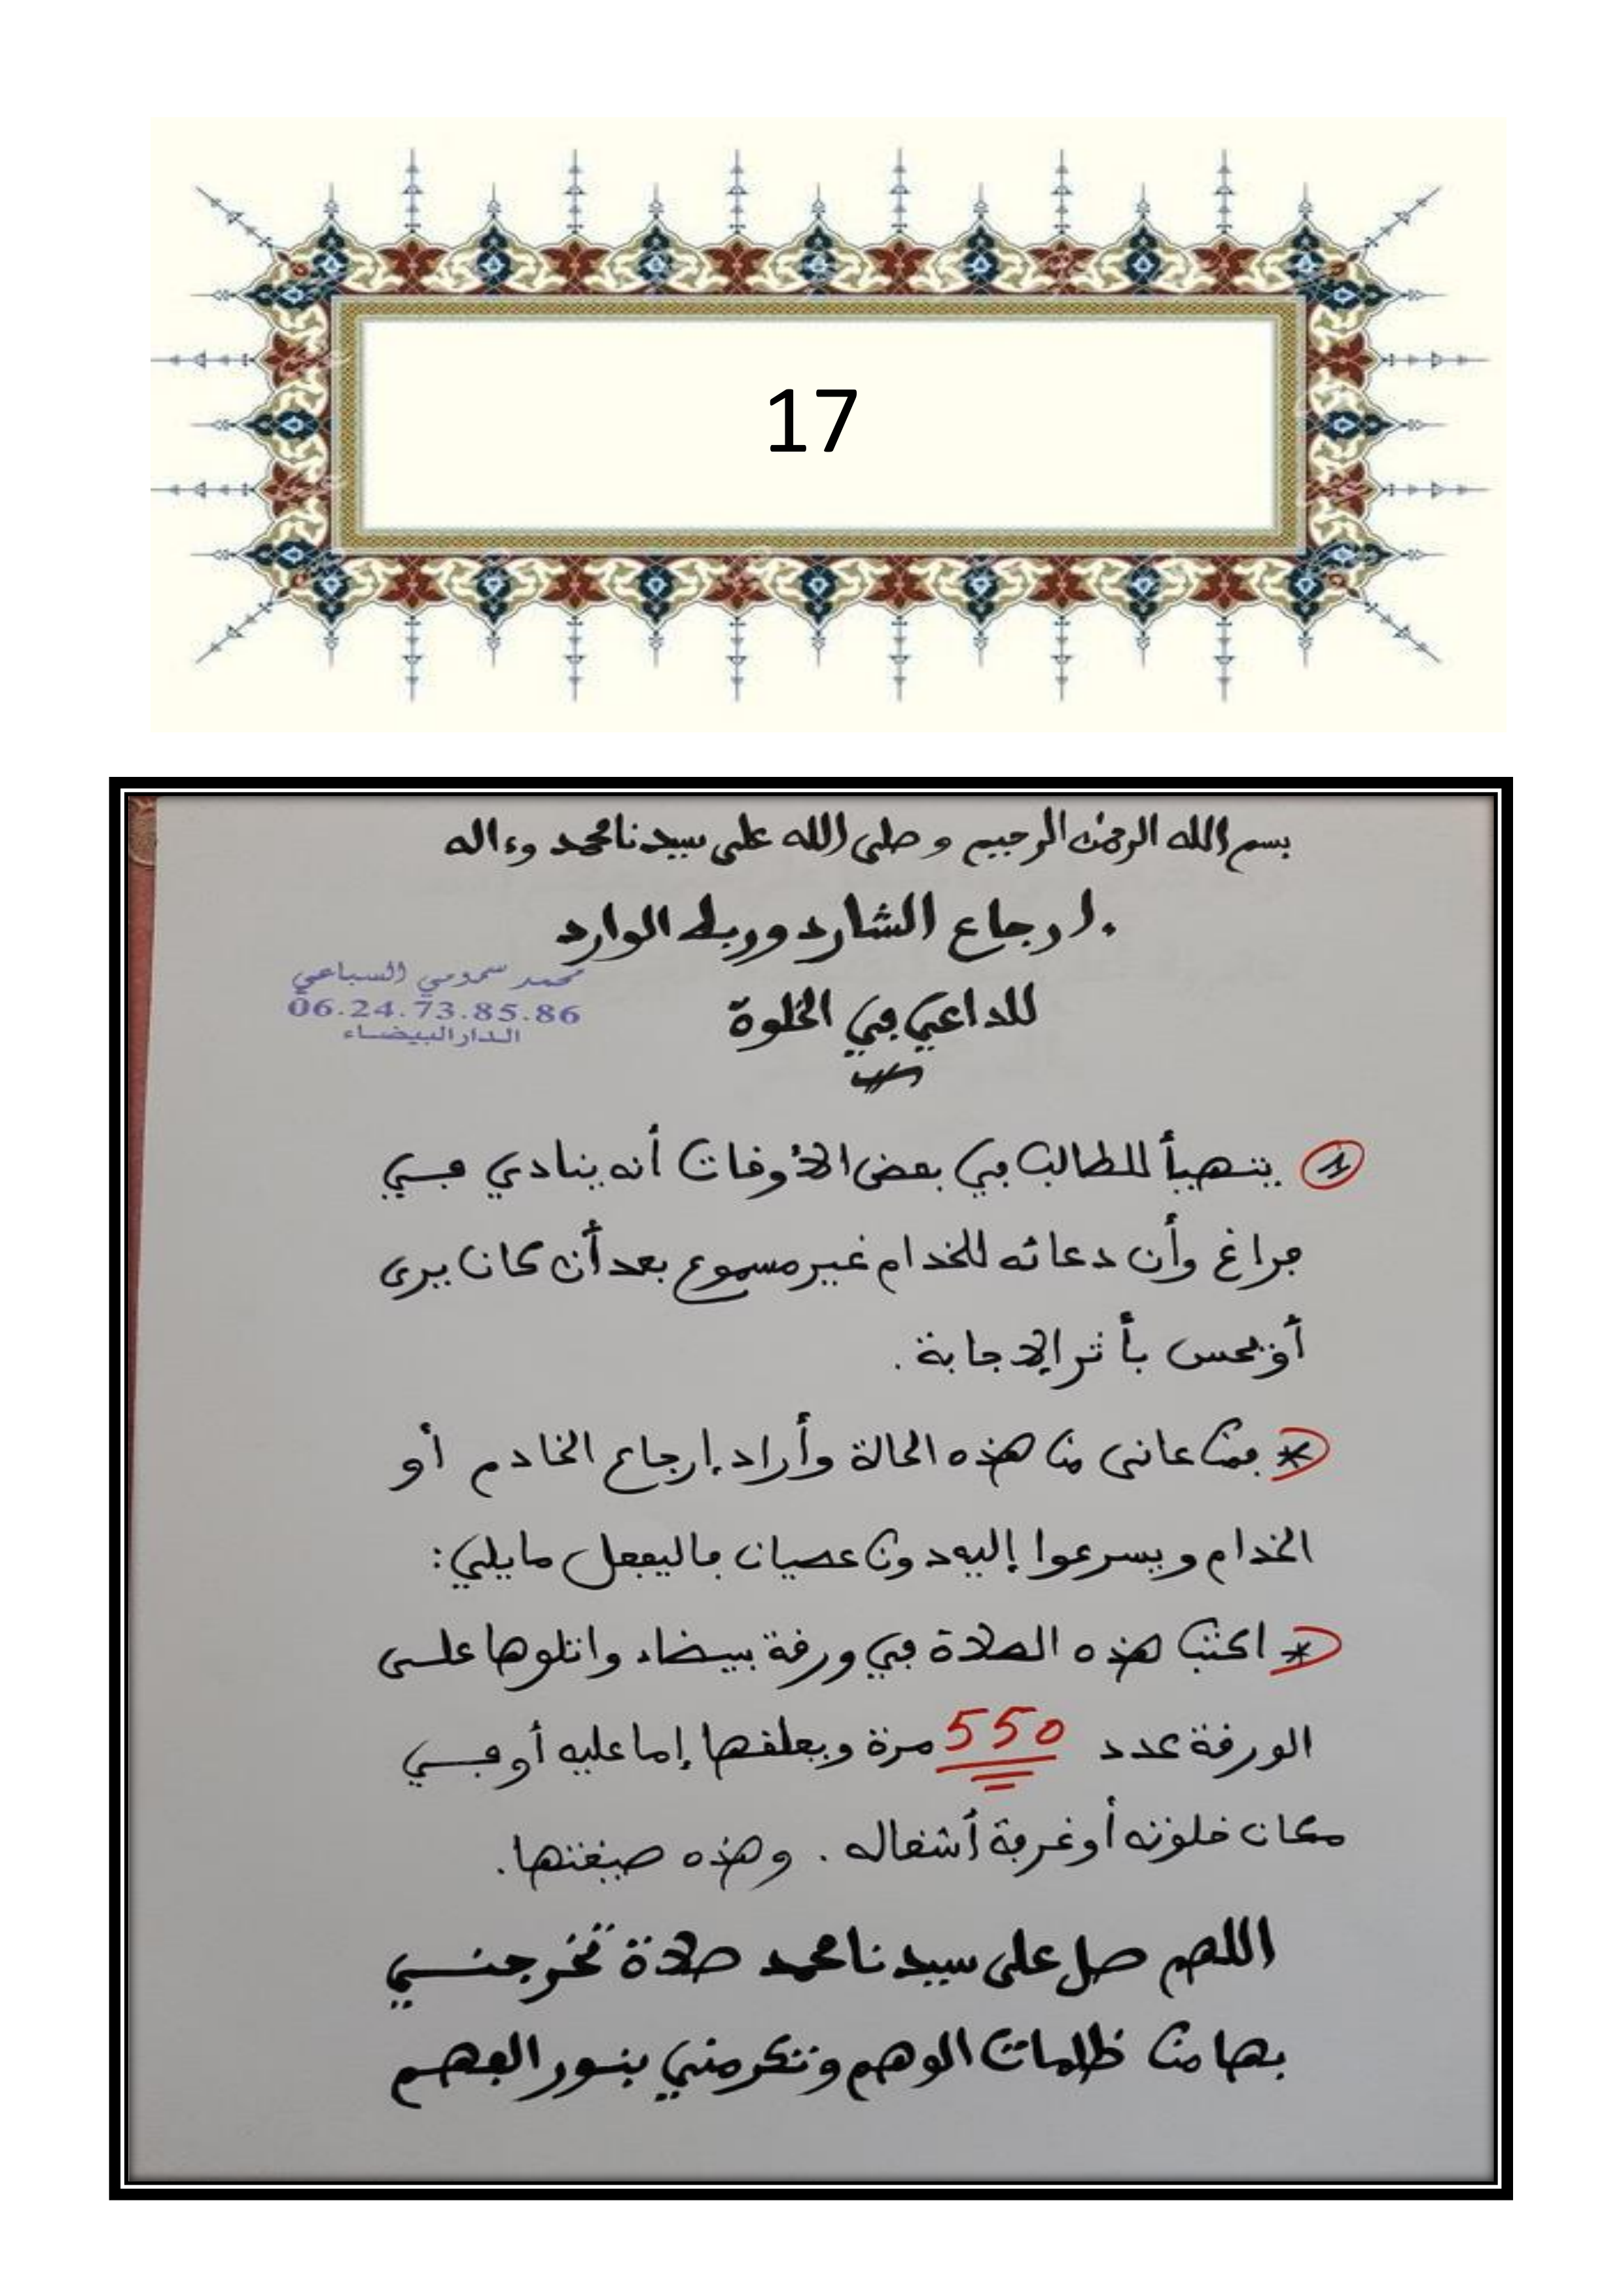 17
بسم الله الرحمن الرحيم وصلى الله على سيدنا محمد وءاله
إرجاع الشارد وربط الوارد
للداعي في الخلوة
محمد سمومي السباعي
06.24.73.85.86
الدار البيضاء
1 يتهيأ للطالب في بعض الأوقات أنه ينادي في
فراغ وأن دعائه للخدام غير مسموع بعد أن كان يرى
أو يحس بأثر الإجابة.
* فمن عانى من هذه الحالة وأراد إرجاع الخادم أو
الخدام ويسرعوا إليه دون عصيان فاليفعل ما يلي:
* اكتب هذه الصلاة في ورقة بيضاء واتلوها على
الورقة عدد 550 مرة ويعلقها إما عليه أو في
مكان خلوته أو غرفة أشغاله. وهذه صيغتها.
اللهم صل على سيدنا محمد صلاة تخرجني
بها من ظلمات الوهم وتكرمني بنور الفهم